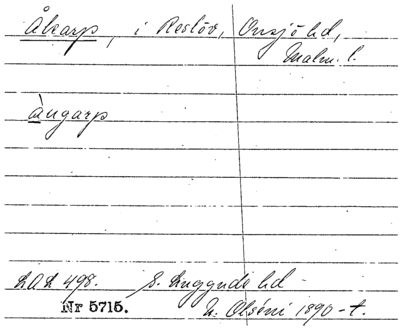 Åkarp, i Reslöv, Onsjö hd,
Malm. l.
Àngarp
LAL 498. S. Luggude hd
Nr 5715. N. Olséni 1890-t.